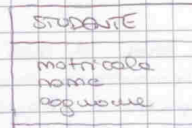 STUDENTE
matricola
nome
cognome